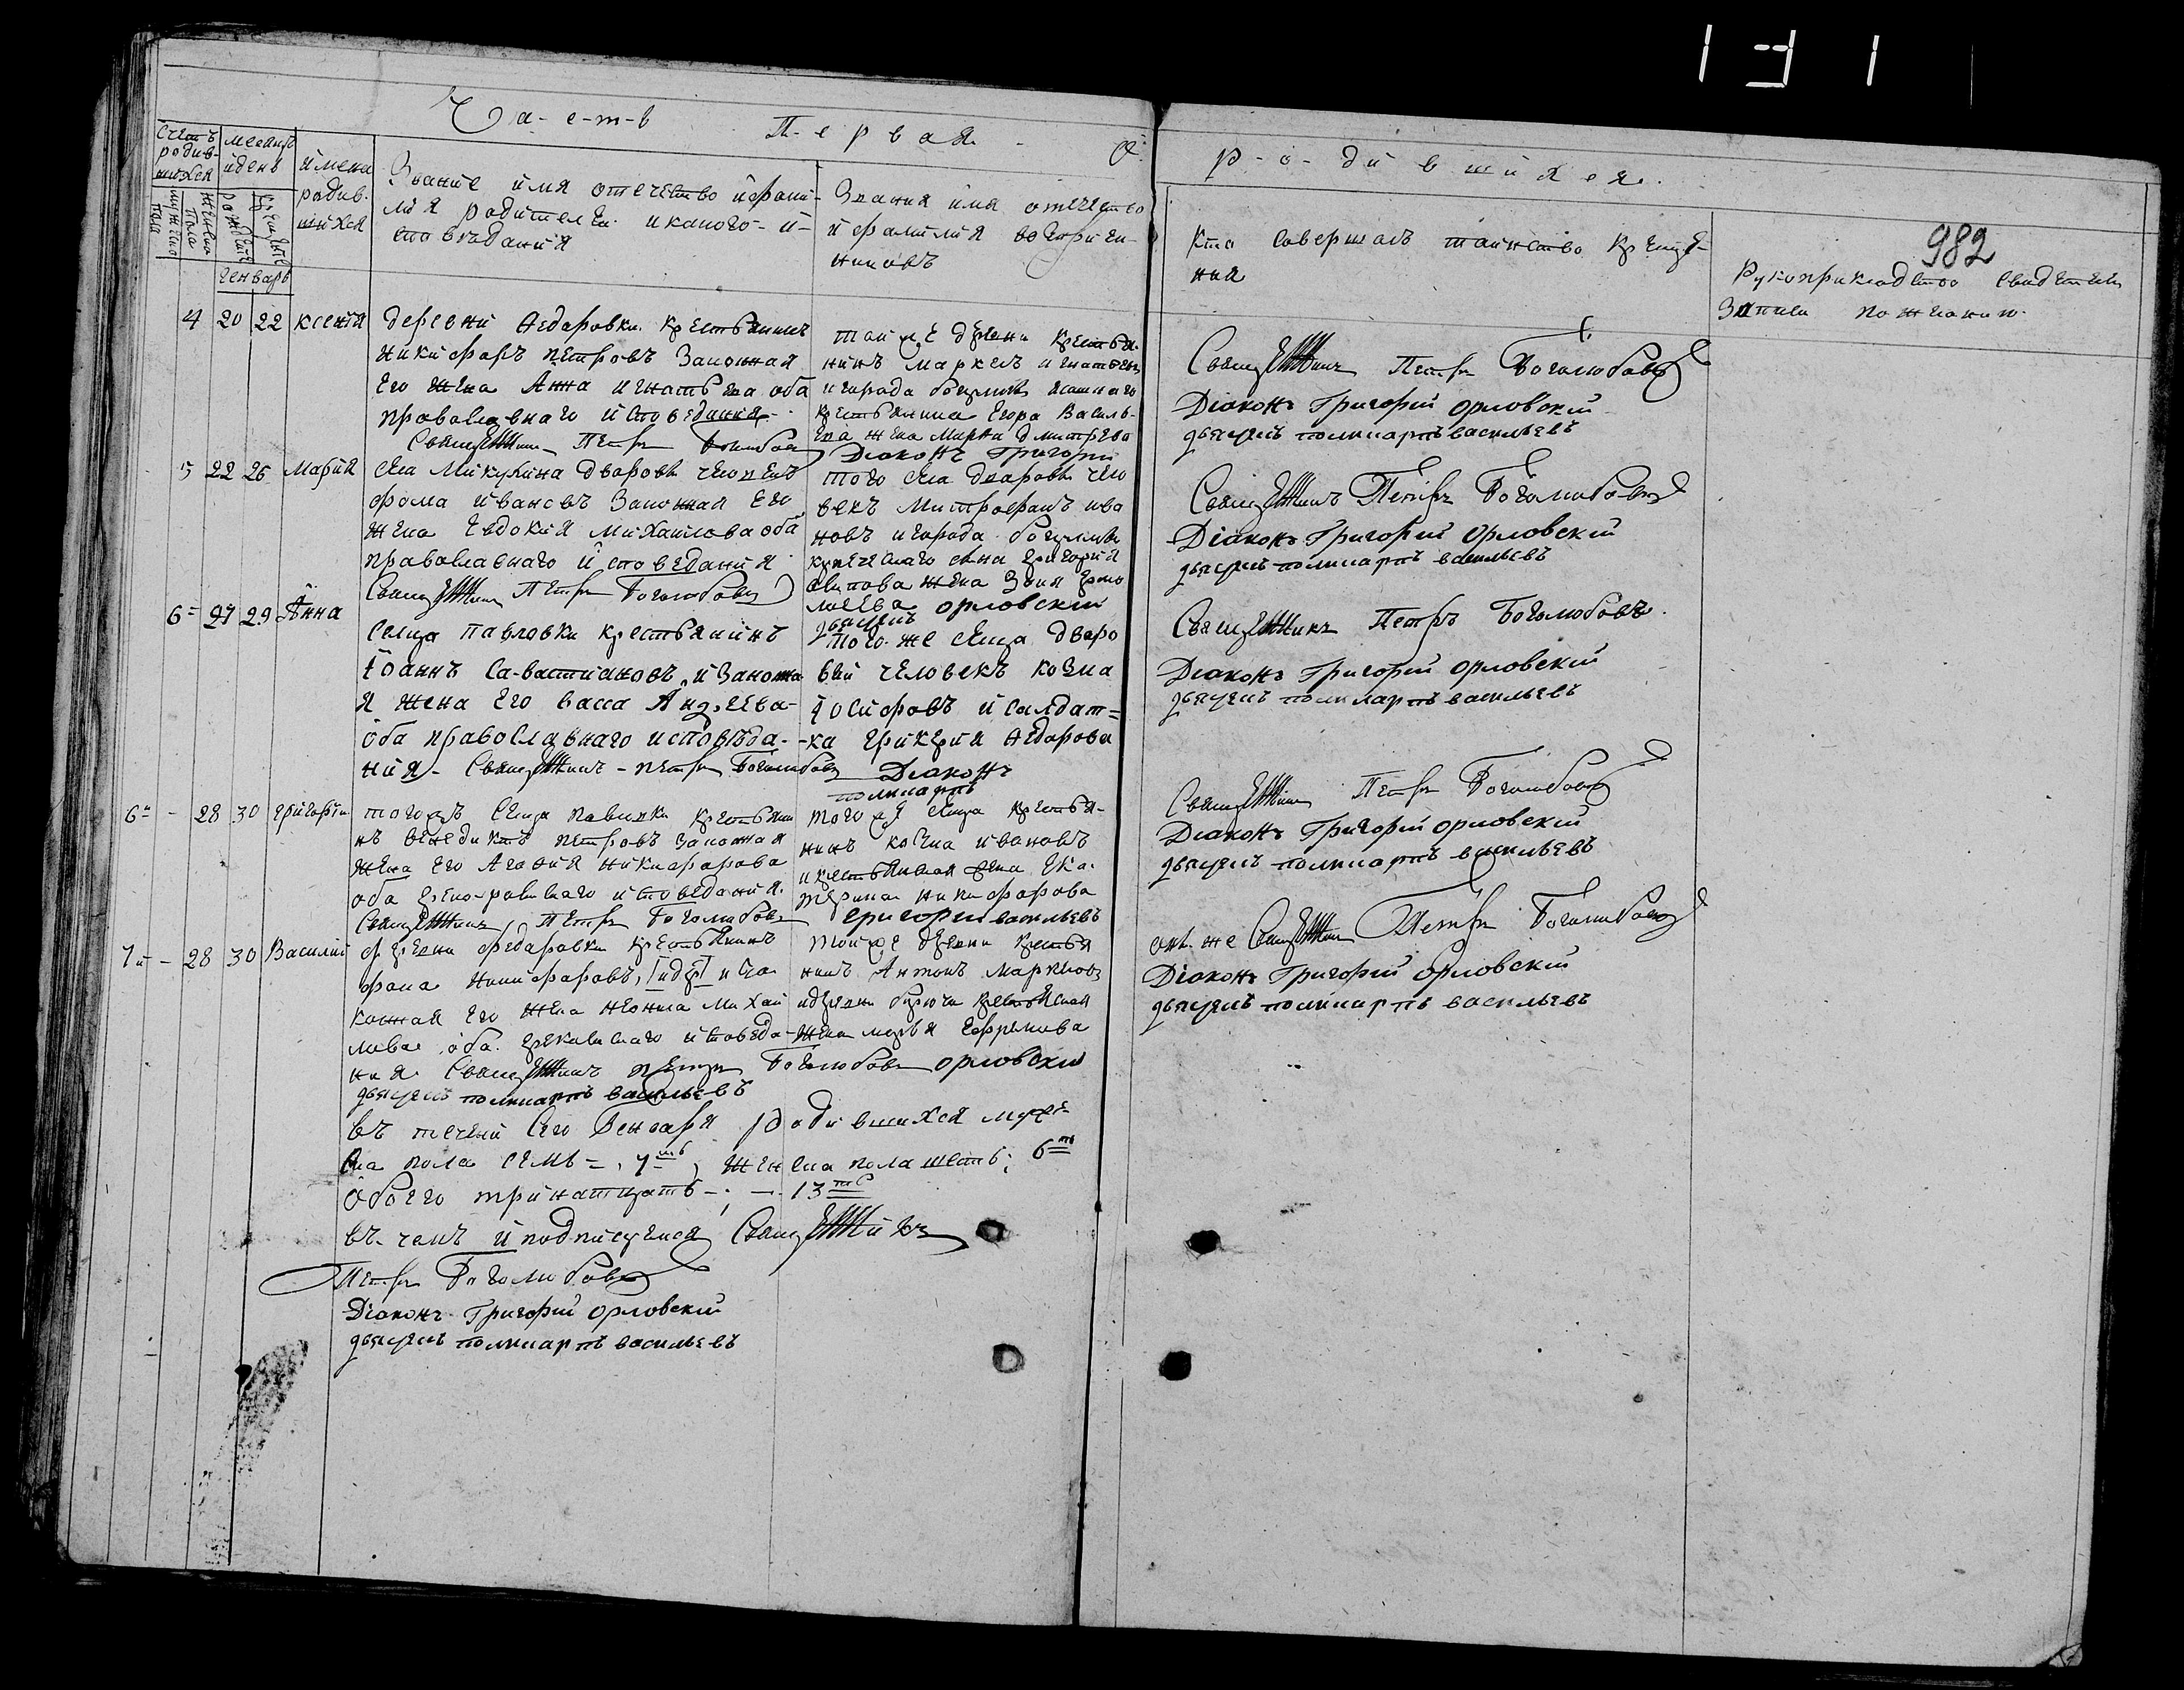 131
Ча-с-т-ь Первая О
р-о-дившихся.
982
Счетъ родив-шихся
мужеска пола
женска пола
месяцъ и день
рожденiе
крещенiе
имена родив-шихся
Званiе имя отечество и фами-
лiя родителей и какого-и-
споведанiя
Званiя имя отечество
и фамилiя восприем-
никовъ
Кто совершалъ таинство креще-
нiя
Рукоприкладство свидетелей
записи по желанию
Генварь
4 20 22 Ксенiя
деревни Федаровки крестьянинъ
никифаръ петровъ Законная
его жена Анна игнатьева оба
православнаго исповеданiя
Священникъ Петръ Боголюбовъ
той же деревни крестья-
нинъ маркелъ игнатьевъ
и города
крестьянина Егора Василь-
ева жена Марья дмитрева
Дiаконъ Григорiй
Священникъ Петръ Боголюбовъ
Дiаконъ Григорiй Орловскiй
дьячекъ поликарпъ васильевъ
5 22 26 Марiя
села Микулина дваровы человекъ
фома ивановъ Законная его
жена Евдокiя Михаилова оба
православнаго исповеданiя
Священникъ Петръ Боголюбовъ
того села дваровы чело
векъ Митрофанъ ива
новъ и города
купеческаго сына григорiя
жена
орловскiй
дьячекъ
Священникъ Петръ Боголюбовъ
Дiаконъ Григорiй Орловскiй
дьячекъ поликарпъ васильевъ
6 27 29 Анна
сельца павловки крестьянинъ
Iоаннъ Савастiановъ и Законна
я жена Его васса Андреева
оба православнаго исповѣда-
нiя Священникъ петръ Боголюбовъ
того же сельца дваро
вый человекъ козма
Iосифовъ и салдат=
ка Гликерiя Федарова
Дiаконъ
поликарпъ
Священникъ Петръ Боголюбовъ
Дiаконъ Григорiй Орловскiй
дьячекъ поликарпъ васильевъ
6 - 28 30 Григорiи
тогожъ сельца павловки крестьяни
нъ венедиктъ петровъ законная
жена его Агафiя никифарова
оба исповеданiя
Священникъ Петръ Боголюбовъ
того же сельца крестья-
нинъ козма ивановъ
и крестьянская жена Ека-
терина никифарова
григорiй васильевъ
Священникъ Петръ Боголюбовъ
Дiаконъ Григорiй Орловскiй
дьячекъ поликарпъ васильевъ
7й - 28 30 Василiй
деревни федаровки крестьянинъ
Никифаровъ,
жена Михаи
лова оба исповеда-
нiя Священникъ петръ Боголюбовъ орловскiй
дьячекъ поликарпъ васильевъ
той же деревни крестья
нинъ Антонъ Маркеловъ
и деревни крестьянская
жена марья Ефремова
онъ же Священникъ Петръ Боголюбовъ
Дiаконъ Григорiй Орловскiй
дьячекъ поликарпъ васильевъ
въ теченiи сего Генваря родившихся муже
ска пола семь =, 7мь, женска пола шесть; 6ть
обоего тринатцать -; - 13ть
въ чемъ и подписуемся Священникъ
Петръ Боголюбовъ
Дiаконъ Григорiй Орловскiй
дьячекъ поликарпъ васильевъ